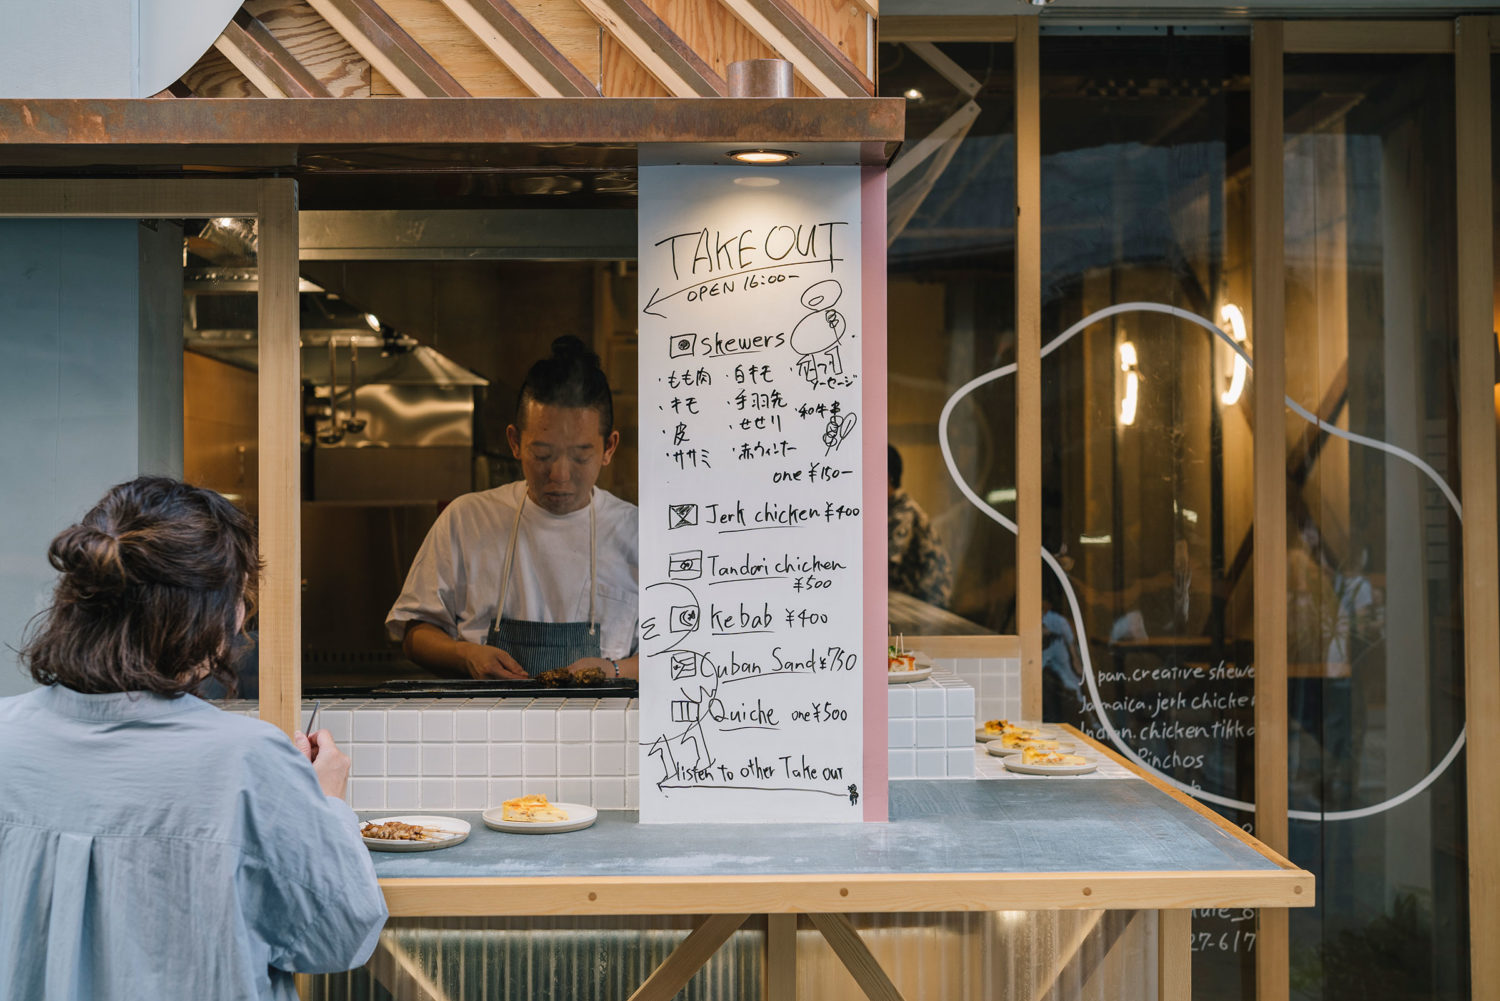 TAKE OUT
OPEN 16:00-
skewers
・もも肉 ・白キモ
ソーセージ
・キモ ・手羽先 ・和牛串
・皮 ・せせり
・ササミ ・赤ウィンナー
one ¥150-
Jerk chicken ¥400
Tandori chicken
¥500
Kebab ¥400
Cuban Sand ¥750
Quiche one ¥500
listen to other Take out
Japan.creative skewe
Jamaica.jerk chicken
Indian.chicken tikka
Pinchos
27-617